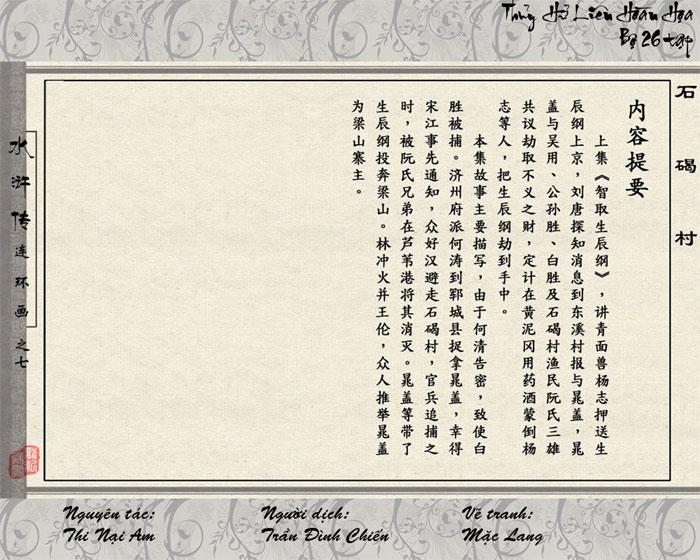 Thủy Hử Liên Hoàn Họa
Bộ 26 tập
石碣村
内容提要
上集《智取生辰纲》，讲青面兽杨志押送生
辰纲上京，刘唐探知消息到东溪村报与晁盖，晁
盖与吴用、公孙胜、白胜及石碣村渔民阮氏三雄
共议劫取不义之财，定计在黄泥冈用药酒蒙倒杨
志等人，把生辰纲劫到手中。
本集故事主要描写，由于何清告密，致使白
胜被捕。济州府派何涛到郓城县捉拿晁盖，幸得
宋江事先通知，众好汉避走石碣村，官兵追捕之
时，被阮氏兄弟在芦苇港将其消灭。晁盖等带了
生辰纲投奔梁山。林冲火并王伦，众人推举晁盖
为梁山寨主。
水浒传连环画之七
Nguyên tác:
Thi Nại Am
Người dịch:
Trần Đình Chiến
Vẽ tranh:
Mặc Lang